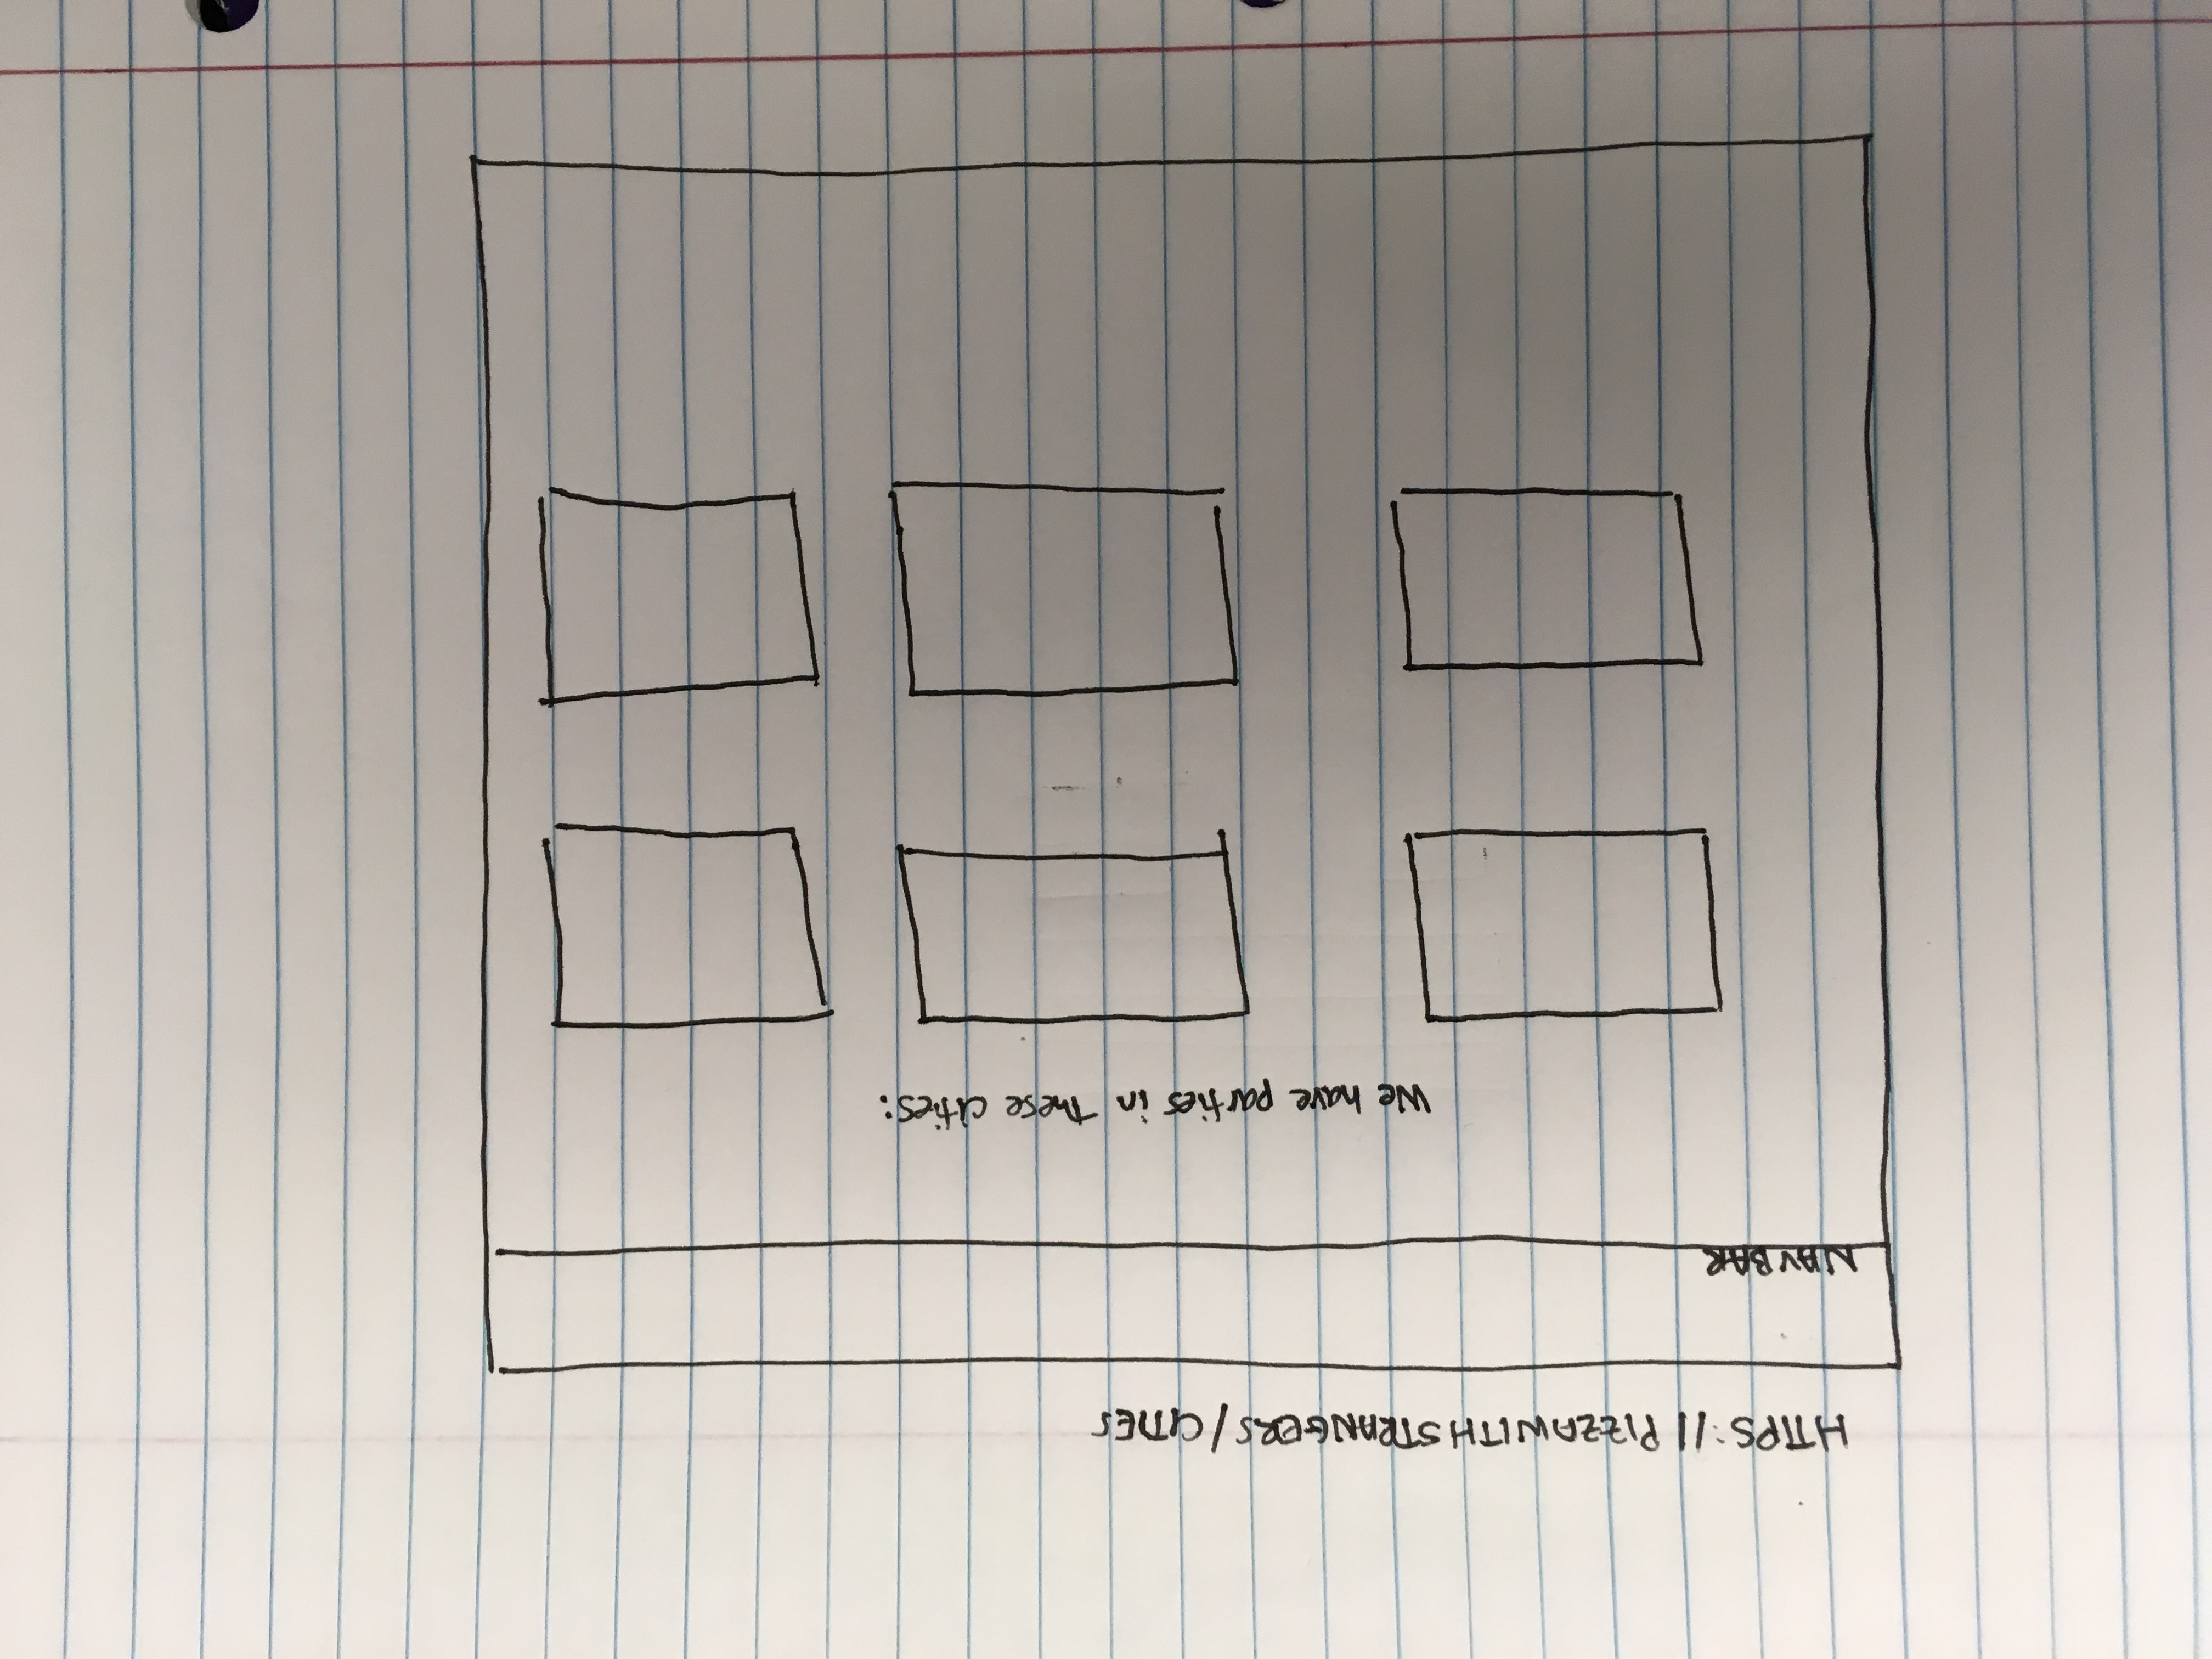 HTTPS://PIZZAWITHSTRANGERS/CITIES
NAVBAR
We have parties in these cities: